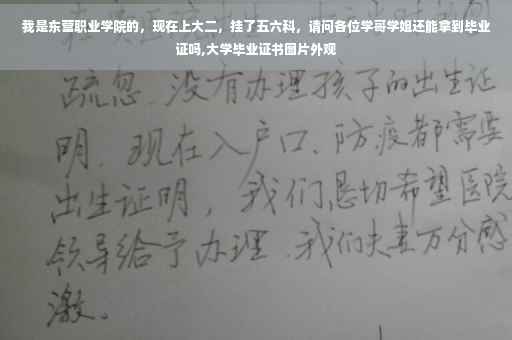 我是东营职业学院的，现在上大二，挂了五六科，请问各位学哥学姐还能拿到毕业
证吗,大学毕业证书图片外观
疏忽.没有办理孩子的出生证
明.现在入户口、防疫都需要
出生证明，我们恳切希望医院
领导给予办理.我们夫妻万分感
激。